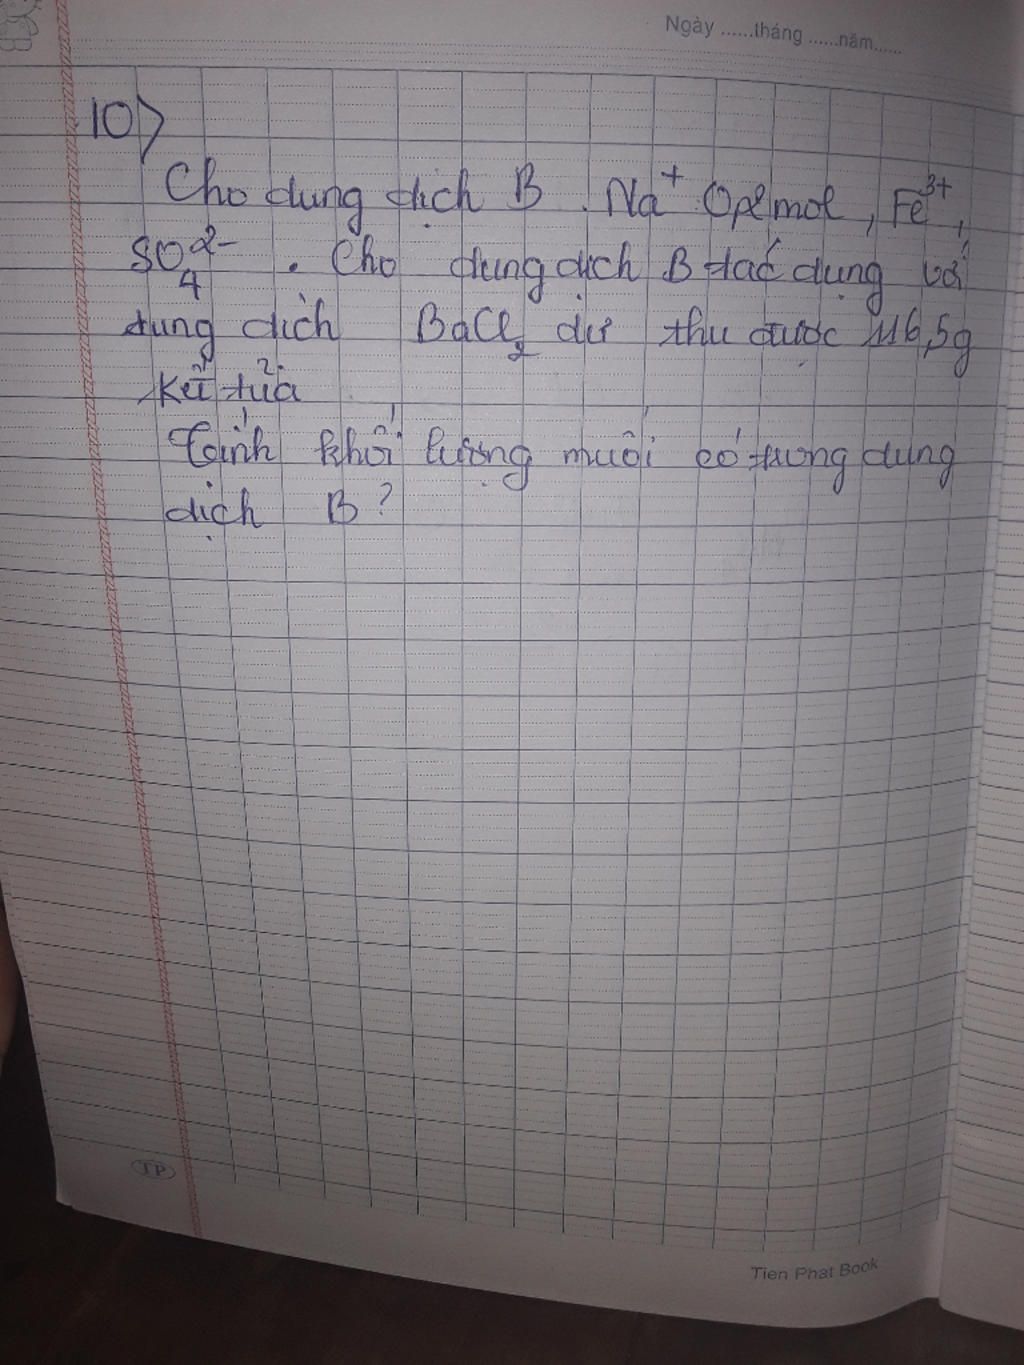 Ngày ......tháng ......năm......
10>
Cho dung dịch B. Na⁺ 0,2 mol, Fe³⁺,
SO₄²⁻. Cho dung dịch B tác dụng với
dung dịch BaCl₂ dư thu được 116,5g
kết tủa
Tính khối lượng muối có trong dung
dịch B?
TP
Tien Phat Book